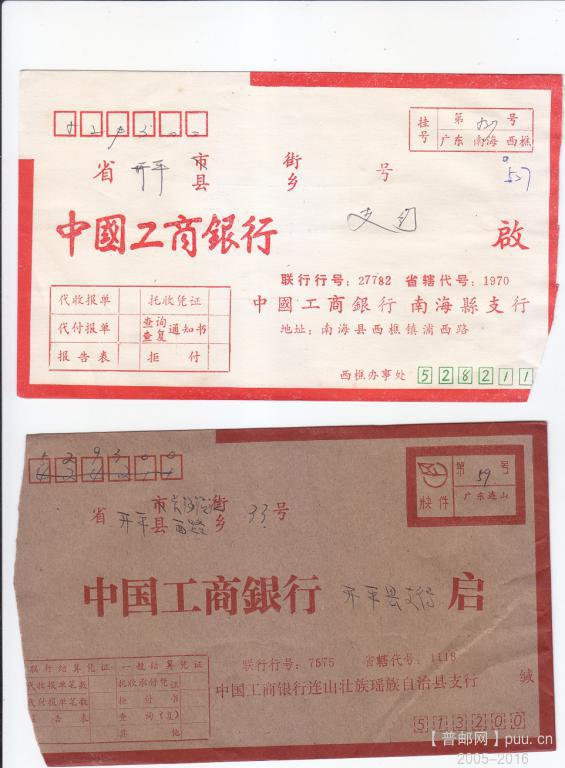 挂号 第 号
广东 南海 西樵
省 开平 市县 街乡 号
537
中國工商銀行 支行 啟
联行行号：27782 省辖代号：1970
中國工商銀行 南海縣支行
地址：南海县西樵镇浦西路
代收报单 托收凭证
代付报单 查询查复通知书
报告表 拒付
西樵办事处 528211
529300
快件 第 59 号
广东连山
省 开平 市县 西路 街乡 33号
中国工商銀行 开平县支行 启
联行行号：7575 省辖代号：1118
中国工商银行连山壮族瑶族自治县支行 缄
联行结算凭证 一般结算凭证
代收报单笔数 托收承付凭证
代付报单笔数 拒付书
告表 查询(复)
其他
513200
【普邮网】puu.cn
2005-2016